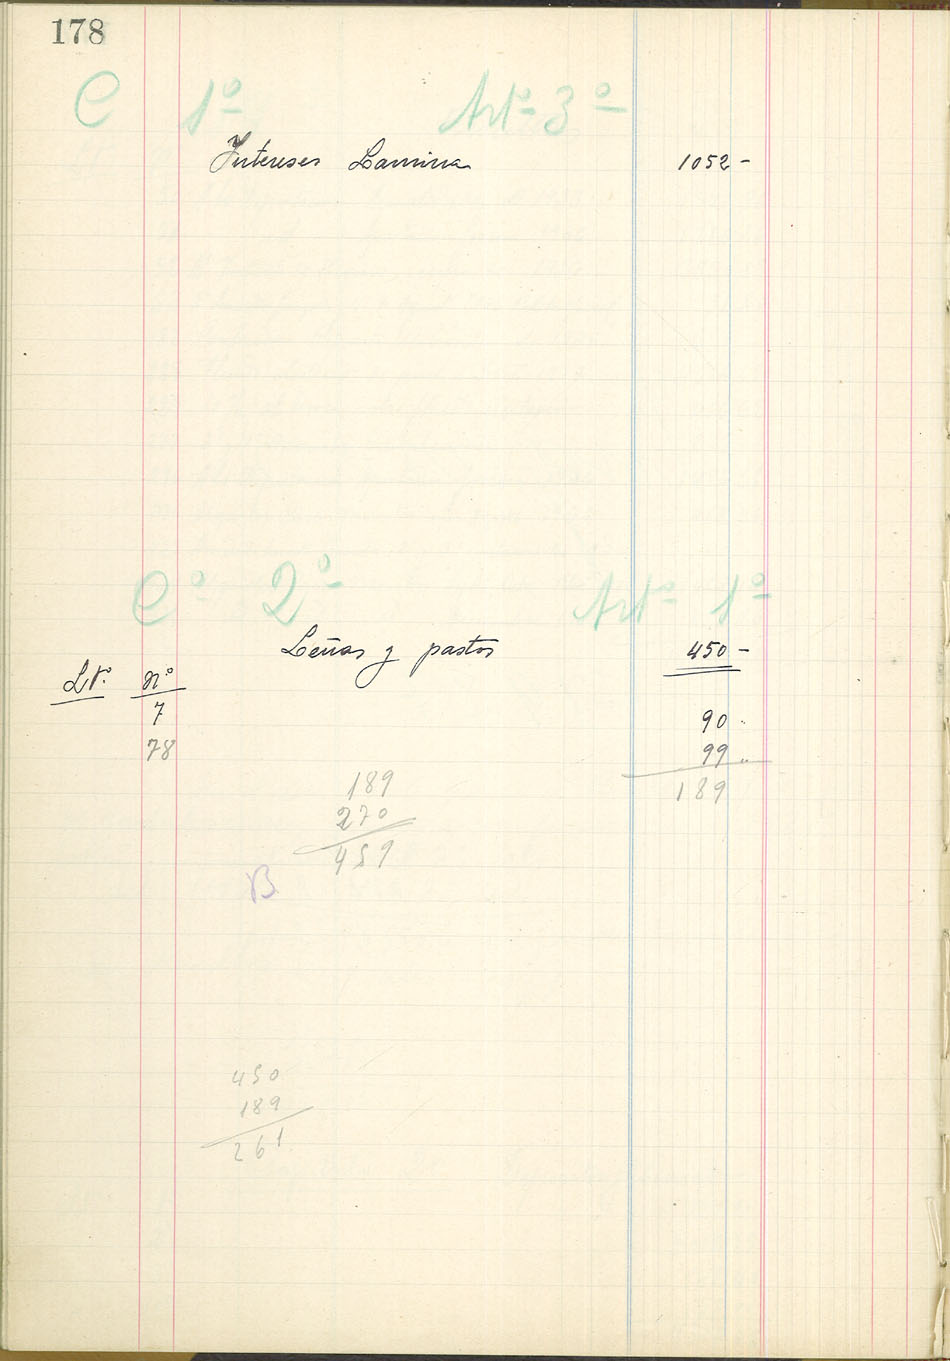 178
C 1º Artº 3º
Intereses Lamina 1052-
Cº 2º Artº 1º
Leñas y pastos 450-
Lº nº
7 90
78 99
189
189
270
459
B
450
189
261